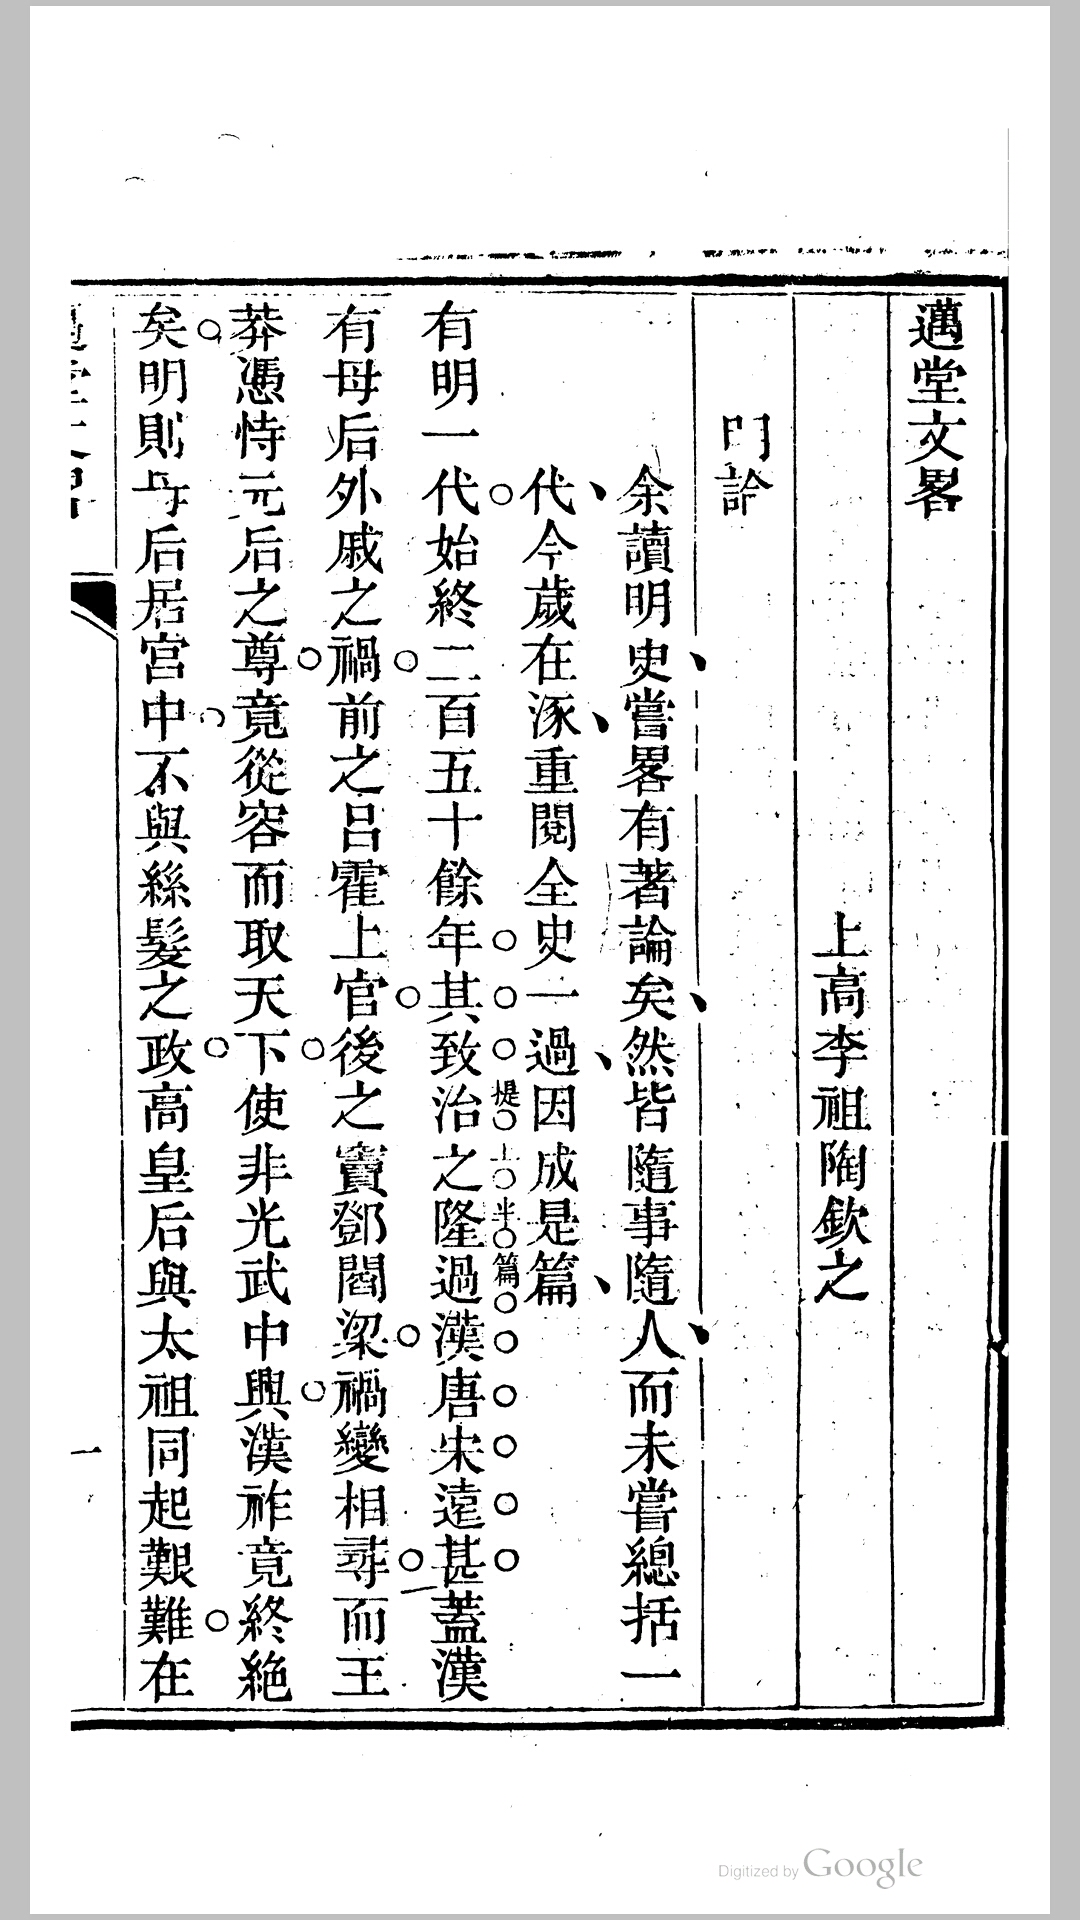 邁堂文畧
上高李祖陶欽之
論
余讀明史嘗畧有著論矣然皆隨事隨人而未嘗總括一
代今歲在涿重閱全史一過因成是篇
提上半篇
有明一代始終二百五十餘年其致治之隆過漢唐宋遠甚蓋漢
有母后外戚之禍前之呂霍上官後之竇鄧閻梁禍變相尋而王
莽憑恃元后之尊竟從容而取天下使非光武中興漢祚竟終絶
矣明則母后居宮中不與絲髮之政高皇后與太祖同起艱難在
一
Digitized by Google